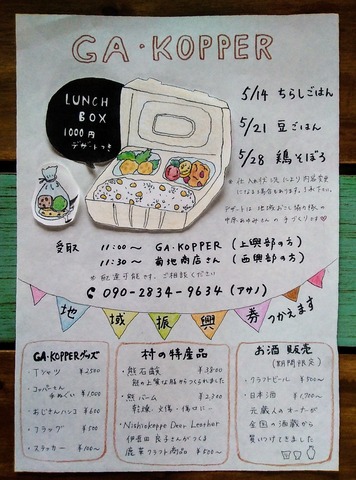 GA・KOPPER
LUNCH
BOX
1000円
デザートつき
5/14 ちらしごはん
5/21 豆ごはん
5/28 鶏そぼろ
※仕入れ状況により内容変更
になる場合があります。ご了承下さい。
デザートは地域おこし協力隊の
中原あゆみさんの手づくりです♡
受取 11:00〜 GA・KOPPER (上興部の方)
11:30〜 菊地商店さん (西興部の方)
※配達可能です。ご相談ください
090-2834-9634 (アサノ)
地域振興券つかえます
GA・KOPPERグッズ
・Tシャツ ¥2500
・コッパーさん
手ぬぐい ¥1,000
・おじさんハンコ ¥600
・フラッグ ¥500
・ステッカー ¥100〜
村の特産品
・熊石鹸 ¥3800
熊の上質な脂からつくられました
・熊バーム ¥2300
乾燥・火傷・傷口に…
・Nishiokoppe Deer Leather
伊吾田 良子さんがつくる
鹿革クラフト商品 ¥500〜
お酒 販売
(期間限定)
・クラフトビール ¥500〜
・日本酒 ¥1,300〜
元蔵人のオーナーが
全国の酒蔵から
買いつけてきました